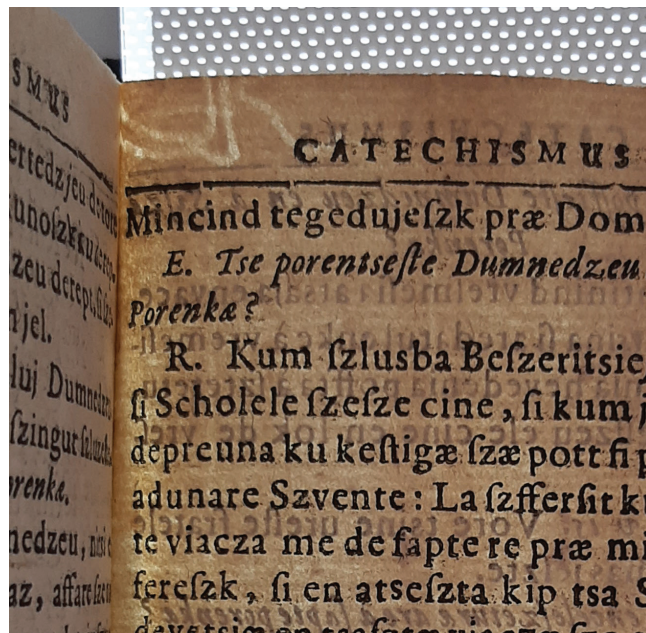 SMUS
kunoſzk ku
zeu derept
n jel.
luj Dumnedzeu
ſzingur
orenkæ.
nedzeu, niſi
az, affare
CATECHISMUS
Mincind tegedujeſzk præ Dom
E. Tse porentseſte Dumnedzeu
Porenkæ?
R. Kum ſzlusba Beſzeritsie
ſi Scholele ſzeſze cine, ſi kum j
depreuna ku keſtigæ ſzæ pott fi p
adunare Szvente: La ſzfferſit ku
te viacza me de fapte re præ mi
fereſzk, ſi en atseſzta kip tsa S